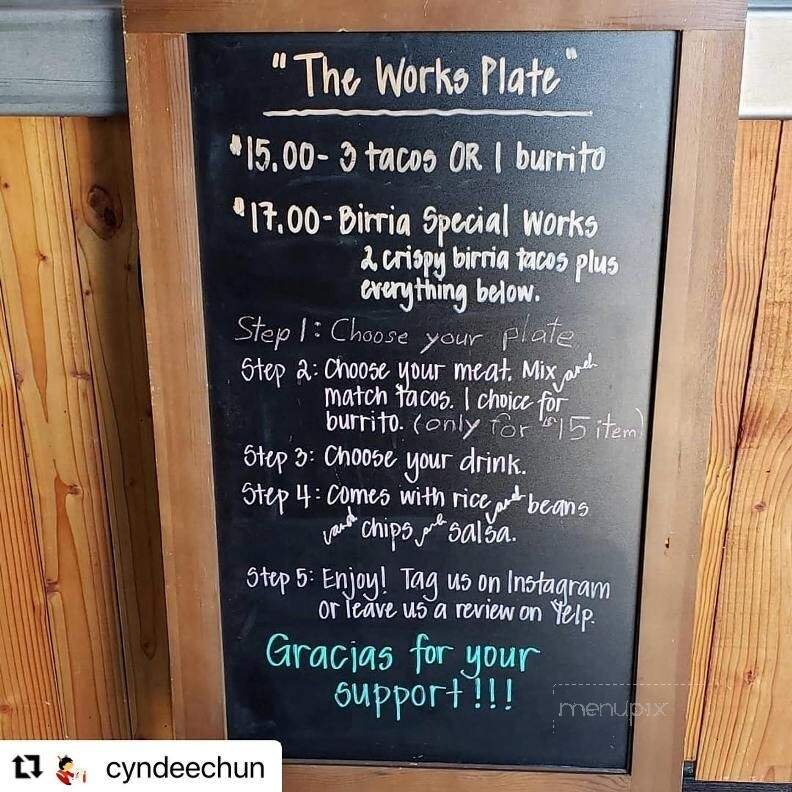 "The Works Plate"
$15.00- 3 tacos OR 1 burrito
$17.00- Birria Special Works
2 crispy birria tacos plus
everything below.
Step 1: Choose your plate
Step 2: Choose your meat. Mix and
match tacos. 1 choice for
burrito. (only for $15 item)
Step 3: Choose your drink.
Step 4: Comes with rice and beans
and chips and salsa.
Step 5: Enjoy! Tag us on Instagram
or leave us a review on Yelp.
Gracias for your
support!!!
menupix
cyndeechun